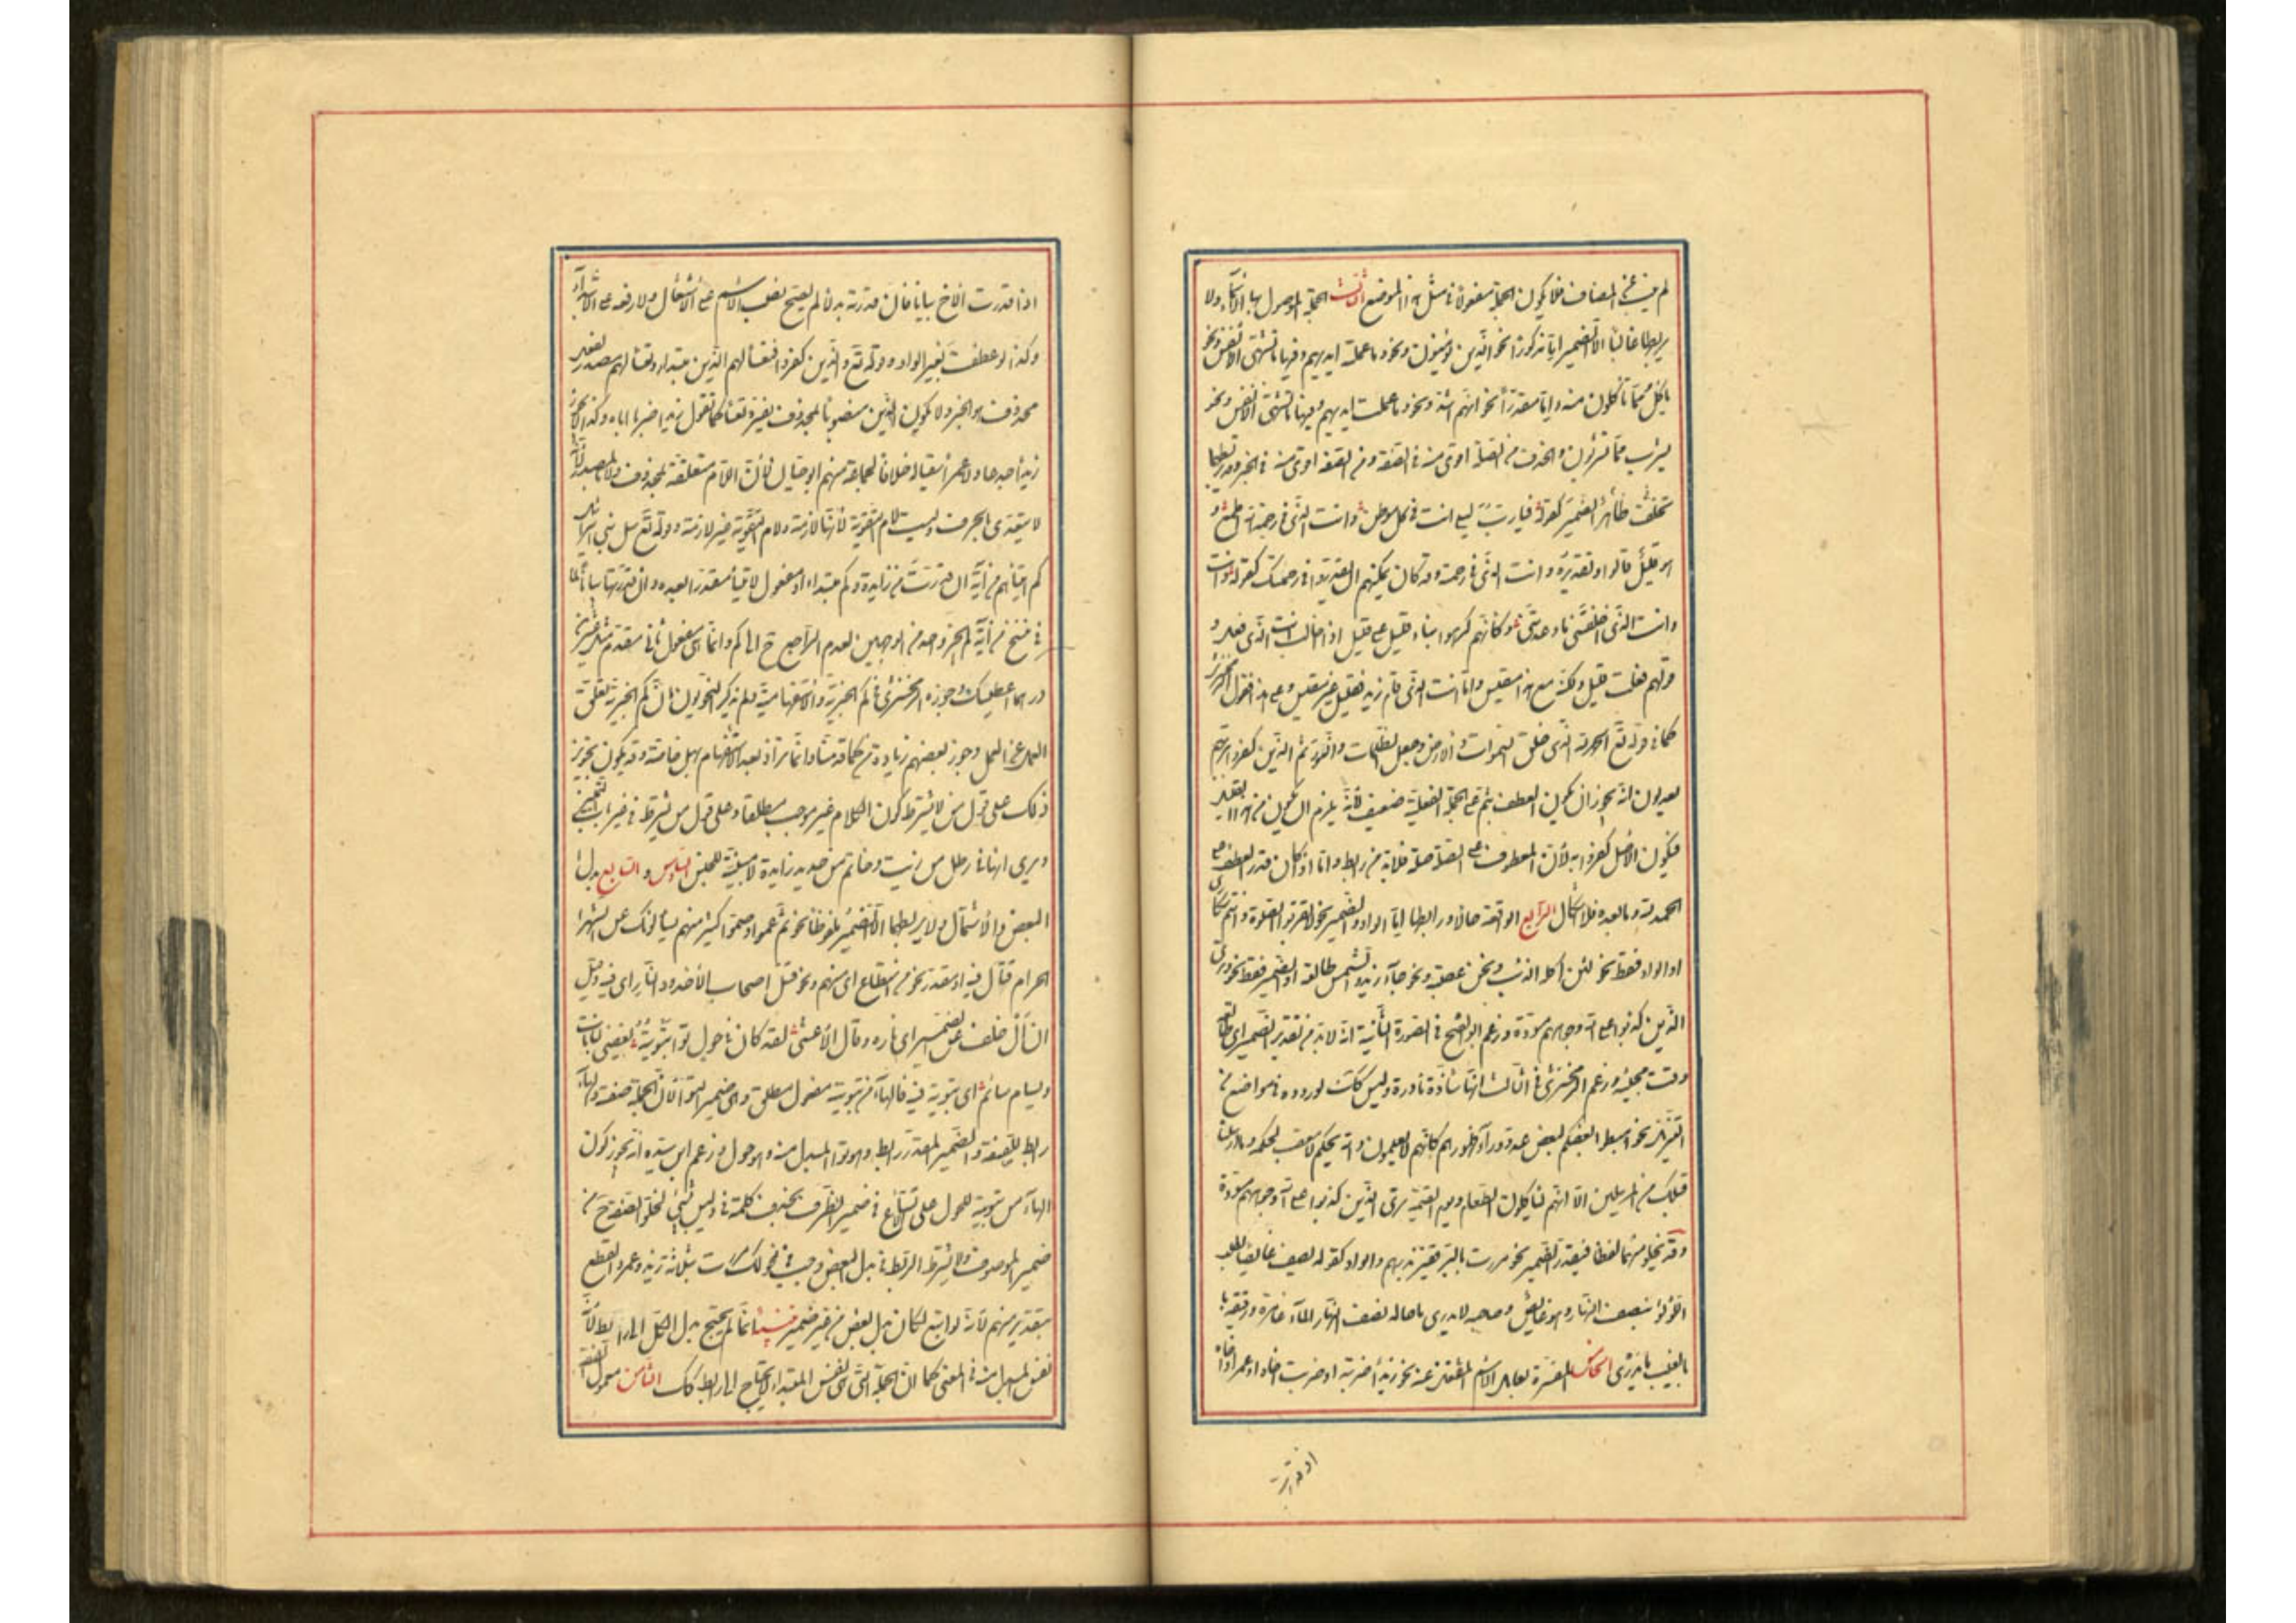 لم يغب عن المضاف فلا يكون الجملة مفعولا في مثل هذا الموضع الثالث الجملة الموصول بها الاسماء ولا
يربطها غالبا الا الضمير اما مذكورا نحو الذين يؤمنون ونحو وما عملته ايديهم وفيها ما تشتهي الانفس ونحو
ياكل مما تاكلون منه واما مقدرا نحو ايهم اشد ونحو وما عملت ايديهم وفيها ما تشتهي الانفس ونحو
يشرب مما تشربون والحذف من الصلة اقوى منه في الصفة ومن الصفة اقوى منه في الخبر وقد يربطها
ظاهر يخلف الضمير كقوله فيا رب ليلى انت في كل موطن وانت الذي في رحمة الله اطمع و
هو قليل قالوا وتقديره وانت الذي في رحمته وقد كان يمكنهم ان يقدروا في رحمتك كقوله وانت
وانت الذي اخلفتني ما وعدتني وكانهم كرهوا بناء قليل على قليل اذ الغالب انت الذي فعل و
قولهم فعلت قليل ولكنه مع هذا مقيس واما انت الذي قام زيد فقليل غير مقيس وعلى هذا فقول الزمخشري
كما في قوله تع الحمد لله الذي خلق السموات والارض وجعل الظلمات والنور ثم الذين كفروا بربهم
يعدلون انه يجوز ان يكون العطف بثم على الجملة الفعلية ضعيف لانه يلزم ان يكون من هذا القليل
فيكون الاصل كفروا به لان المعطوف على الصلة صلة فلا بد من رابط واما اذا كان قدر العطف على
الحمد لله وما بعده فلا اشكال الرابع الواقعة حالا ورابطها اما الواو والضمير نحو لا تقربوا الصلوة وانتم سكارى
او الواو فقط نحو لئن اكله الذئب ونحن عصبة ونحو جاء زيد والشمس طالعة او الضمير فقط نحو ترى
الذين كذبوا على الله وجوههم مسودة وزعم ابو الفتح في الصورة الثانية انه لا بد من تقدير الضمير اي طالعة
وقت مجيئه وزعم الزمخشري في الثالثة انها شاذة نادرة وليس كك لوروده في مواضع من
التنزيل نحو اهبطوا بعضكم لبعض عدو وراء ظهورهم كانهم لا يعلمون والله يحكم لا معقب لحكمه وما ارسلنا
قبلك من المرسلين الا انهم لياكلون الطعام ويوم القيمة ترى الذين كذبوا على الله وجوههم مسودة
وقد يخلو منهما لفظا فيقدر الضمير نحو مررت بالبر قفيز بدرهم والواو كقوله يصف غائصا لطلب
اللؤلؤ نصف النهار وهو غائص وصاحبه لا يدري ما حاله نصف النهار الماء غامره ورفيقه
بالغيب ما يدري الخامس المفسرة لعامل الاسم المشتغل عنه نحو زيدا ضربته او ضربت اخاه او عمرا واخاه
اذا قدرت
اذا قدرت الاخ بيانا فان قدرته بدلا لم يصح نصب الاسم على الاشتغال ولا رفعه على الابتداء
وكذا لو عطفت بغير الواو وقوله تع والذين كفروا فتعسا لهم الذين مبتدا وتعسا لهم مصدر لفعل
محذوف هو الخبر ولا يكون الذين منصوبا بمحذوف يفسره تعسا كما تقول زيدا ضربا اياه وكذا لا يجوز
زيدا جدعا له ولا عمرا سقيا له خلافا لجماعة منهم ابو حيان لان اللام متعلقة بمحذوف لا بالمصدر لانه
لا يتعدى بالحرف وليست لام التقوية لانها لازمة ولام التقوية غير لازمة وقوله تع سل بني اسرائيل
كم اتيناهم من آية ان قدرت من زايدة فكم مبتدا او مفعول لاتينا مقدرا بعده وان قدرتها بيانا لها
في نسخ من آية لم يجز واحد من الوجهين لعدم الراجع ح الى كم وانما هي مفعول ثان مقدم مثل عشرين
درهما اعطيتك وجوز الزمخشري في كم الخبرية والاستفهامية ولم يذكر النحويون ان كم الخبرية تعلق
العامل عن العمل وجوز بعضهم زيادة من كما قدمنا وانما تزاد بعد الاستفهام بهل خاصة وقد يكون تجويز
ذلك على قول من لا يشترط كون الكلام غير موجب مطلقا وعلى قول من يشترط في غير باب التمييز
ويرى انها في رطل من زيت وخاتم من حديد زايدة لا مبينة للجنس السادس والسابع بدل
البعض والاشتمال ولا يربطهما الا الضمير ملفوظا نحو ثم عموا وصموا كثير منهم يسألونك عن الشهر
الحرام قتال فيه او مقدر نحو من استطاع اي منهم ونحو قتل اصحاب الاخدود النار اي فيه وقيل
ان ال خلف عن الضمير اي ناره وقال الاعشى لقد كان في حول ثواء ثويته تقضي لبانات
ويسام سائم اي ثويته فيه فالهاء من ثويته مفعول مطلق وهي ضمير الثواء لان الجملة صفته والهاء
رابط للصفة والضمير المقدر رابط وهو ثواء المبدل منه وهو حول وزعم ابن سيده انه يجوز كون
الهاء من ثويته للحول على الاتساع في ضمير الظرف بحذف كلمة في وليس بشيء لخلو الصفة ح من
ضمير الموصوف ولاشتراط الرابط في بدل البعض وجب في نحو قولك مررت بثلاثة زيد وعمرو القطع
بتقدير منهم لانه لو اتبع لكان بدل بعض من غير ضمير تنبيه انما لم يحتج بدل الكل الى رابط لانه
نفس المبدل منه في المعنى كما ان الجملة التي هي نفس المبتدا لا يحتاج الى رابط كك الثامن معمول الصفة